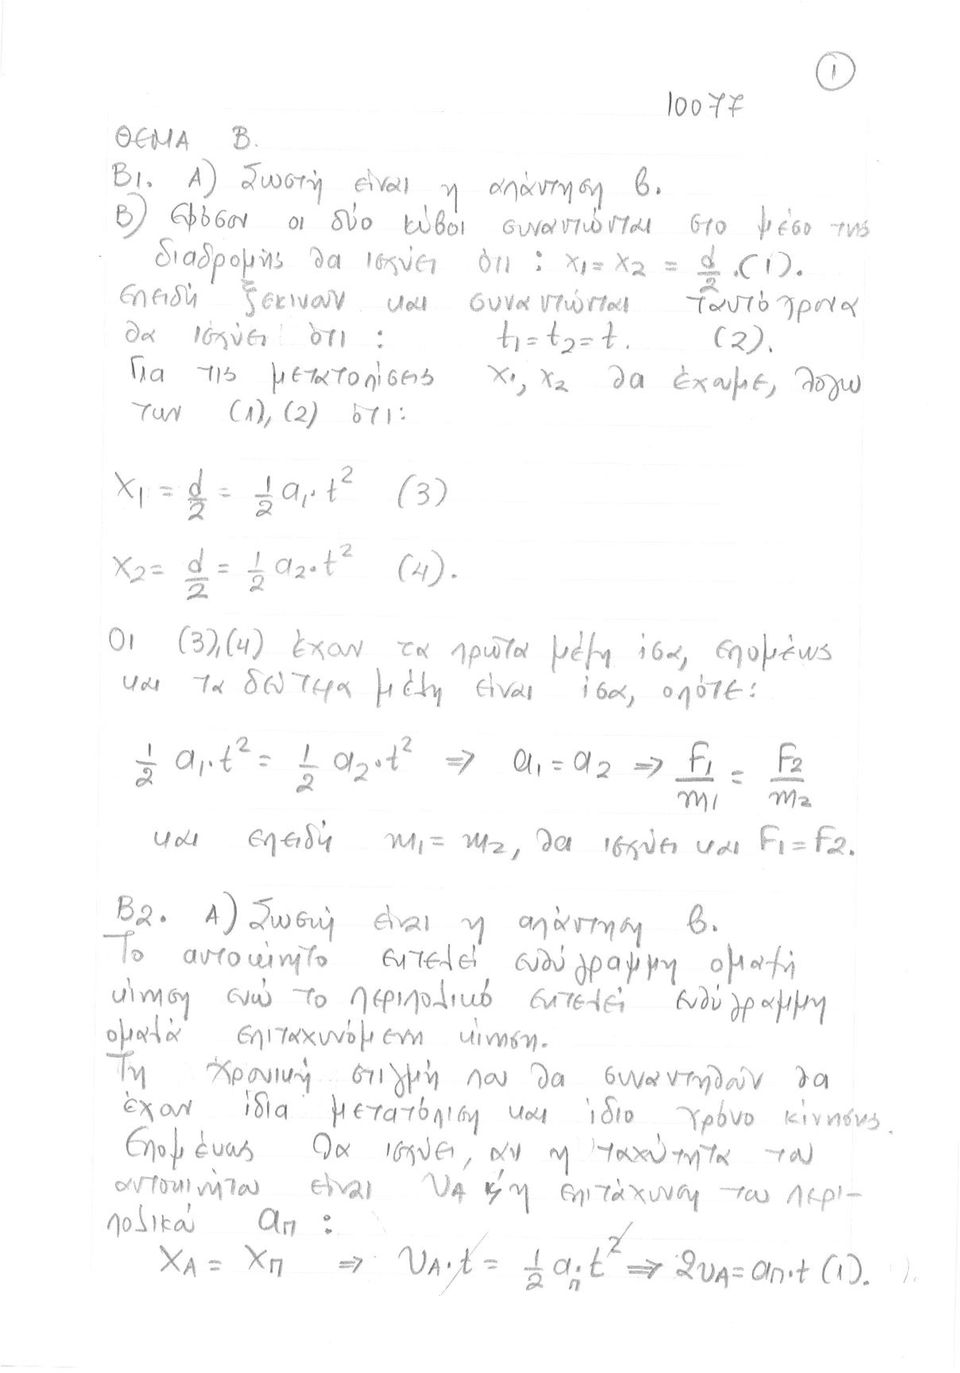 1
10077
ΘΕΜΑ Β.
Β1. Α) Σωστή είναι η απάντηση β.
Β) Εφόσον οι δύο κύβοι συναντώνται στο μέσο της
διαδρομής θα ισχύει ότι : x₁ = x₂ = d/2 .(1).
Επειδή ξεκινούν και συναντώνται ταυτόχρονα
θα ισχύει ότι : t₁ = t₂ = t. (2).
Για τις μετατοπίσεις x₁, x₂ θα έχουμε, λόγω
των (1), (2) ότι:
x₁ = d/2 = 1/2 a₁· t² (3)
x₂ = d/2 = 1/2 a₂· t² (4).
Οι (3),(4) έχουν τα πρώτα μέλη ίσα, επομένως
και τα δεύτερα μέλη είναι ίσα, οπότε:
1/2 a₁· t² = 1/2 a₂· t² ⇒ a₁ = a₂ ⇒ F₁/m₁ = F₂/m₂
και επειδή m₁ = m₂, θα ισχύει και F₁ = F₂.
Β2. Α) Σωστή είναι η απάντηση β.
Το αυτοκίνητο εκτελεί ευθύγραμμη ομαλή
κίνηση ενώ το περιπολικό εκτελεί ευθύγραμμη
ομαλά επιταχυνόμενη κίνηση.
Τη χρονική στιγμή που θα συναντηθούν θα
έχουν ίδια μετατόπιση και ίδιο χρόνο κίνησης.
Επομένως θα ισχύει, αν η ταχύτητα του
αυτοκινήτου είναι υΑ η επιτάχυνση του περι-
πολικού aπ :
xΑ = xπ ⇒ υΑ· t = 1/2 aπ· t² ⇒ 2υΑ = aπ· t (1).